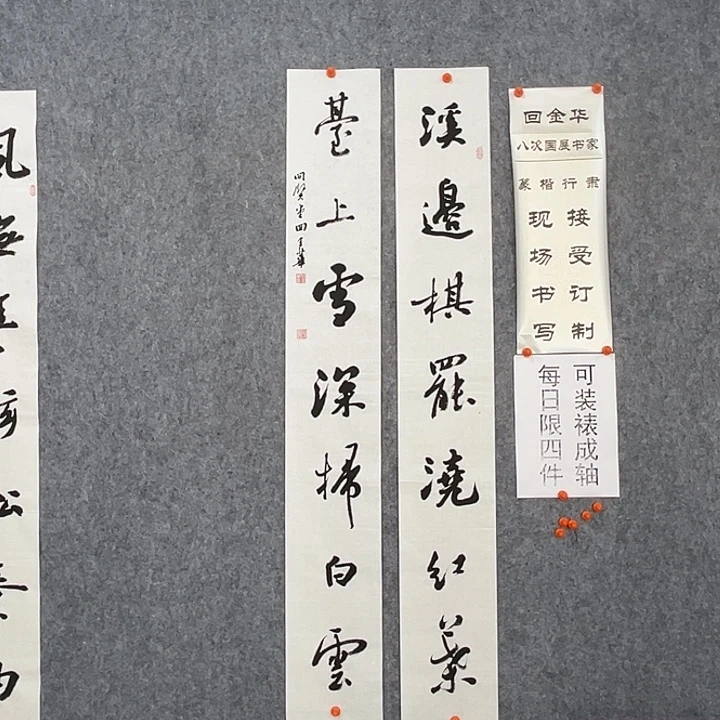 回金华
八次国展书家
篆楷行隶
接受订制
现场书写
可装裱成轴
每日限四件
溪邊棋罷澆紅葉
臺上雪深掃白雲